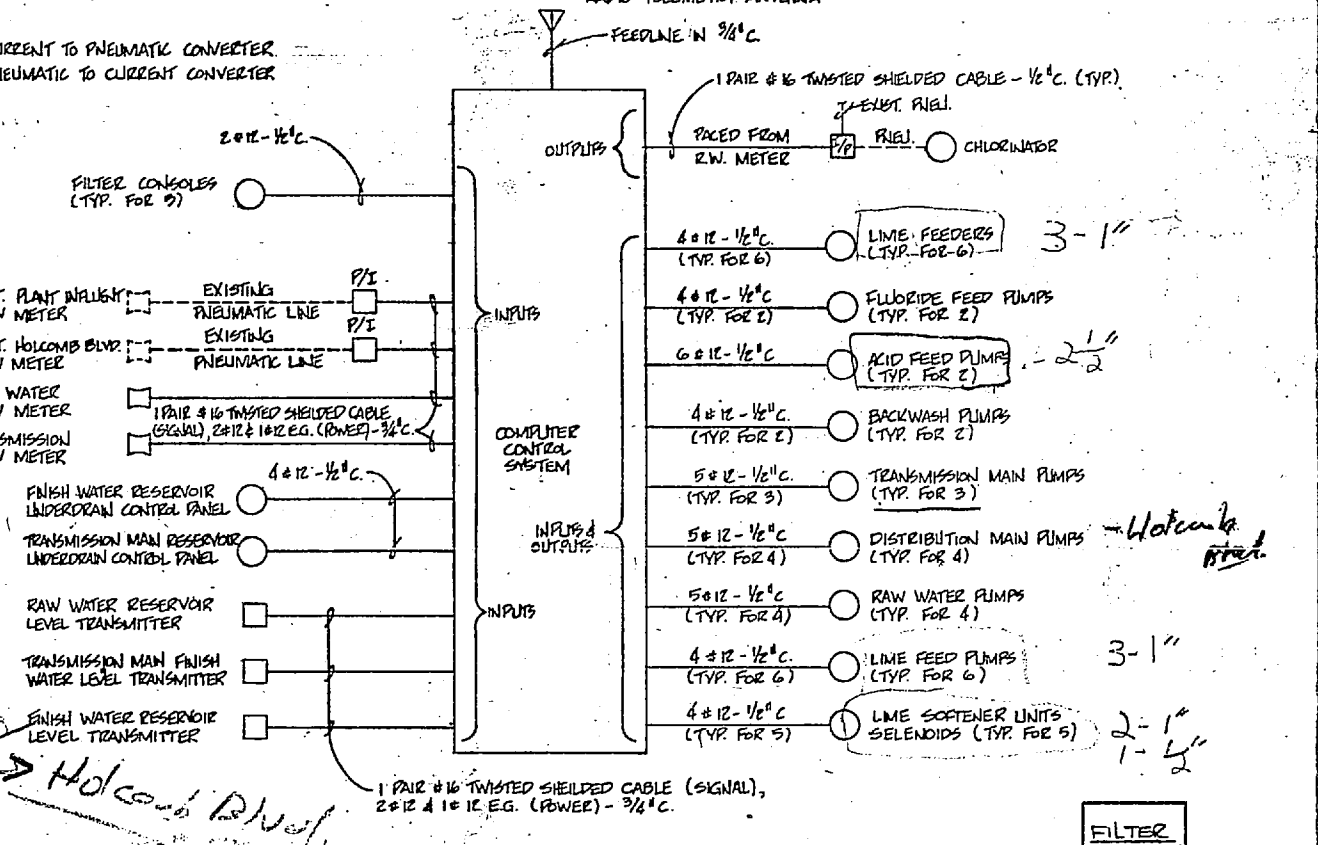 FEEDLINE IN 3/4"C.
CURRENT TO PNEUMATIC CONVERTER.
PNEUMATIC TO CURRENT CONVERTER
1 PAIR #16 TWISTED SHIELDED CABLE - 1/2"C. (TYP.)
EXIST. PNEU.
2#12-1/2"C.
OUTPUTS
PACED FROM
R.W. METER
I/P
PNEU.
CHLORINATOR
FILTER CONSOLES
(TYP. FOR 5)
INPUTS
4#12-1/2"C.
(TYP. FOR 6)
LIME FEEDERS
(TYP. FOR 6)
3-1"
T. PLANT INFLUENT
W METER
EXISTING
PNEUMATIC LINE
P/I
4#12-1/2"C
(TYP. FOR 2)
FLUORIDE FEED PUMPS
(TYP. FOR 2)
T. HOLCOMB BLVD.
W METER
EXISTING
PNEUMATIC LINE
P/I
6#12-1/2"C.
ACID FEED PUMPS
(TYP. FOR 2)
- 2 1/2"
WATER
W METER
SMISSION
W METER
1 PAIR #16 TWISTED SHEILDED CABLE
(SIGNAL), 2#12 & 1#12 E.G. (POWER)-3/4"C.
COMPUTER
CONTROL
SYSTEM
4#12-1/2"C.
(TYP. FOR 2)
BACKWASH PUMPS
(TYP. FOR 2)
4#12-1/2"C.
FINISH WATER RESERVOIR
UNDERDRAIN CONTROL PANEL
TRANSMISSION MAIN RESERVOIR
UNDERDRAIN CONTROL PANEL
5#12-1/2"C.
(TYP. FOR 3)
TRANSMISSION MAIN PUMPS
(TYP. FOR 3)
INPUTS &
OUTPUTS
5#12-1/2"C.
(TYP. FOR 4)
DISTRIBUTION MAIN PUMPS
(TYP. FOR 4)
- Holcomb
INPUTS
RAW WATER RESERVOIR
LEVEL TRANSMITTER
5#12-1/2"C
(TYP. FOR 4)
RAW WATER PUMPS
(TYP. FOR 4)
TRANSMISSION MAIN FINISH
WATER LEVEL TRANSMITTER
4#12-1/2"C.
(TYP. FOR 6)
LIME FEED PUMPS
(TYP. FOR 6)
3-1"
FINISH WATER RESERVOIR
LEVEL TRANSMITTER
4#12-1/2"C
(TYP. FOR 5)
LIME SOFTENER UNITS
SELENOIDS (TYP. FOR 5)
2-1"
1-1/2"
Holcomb Blvd.
1 PAIR #16 TWISTED SHEILDED CABLE (SIGNAL),
2#12 & 1#12 E.G. (POWER) - 3/4"C.
FILTER